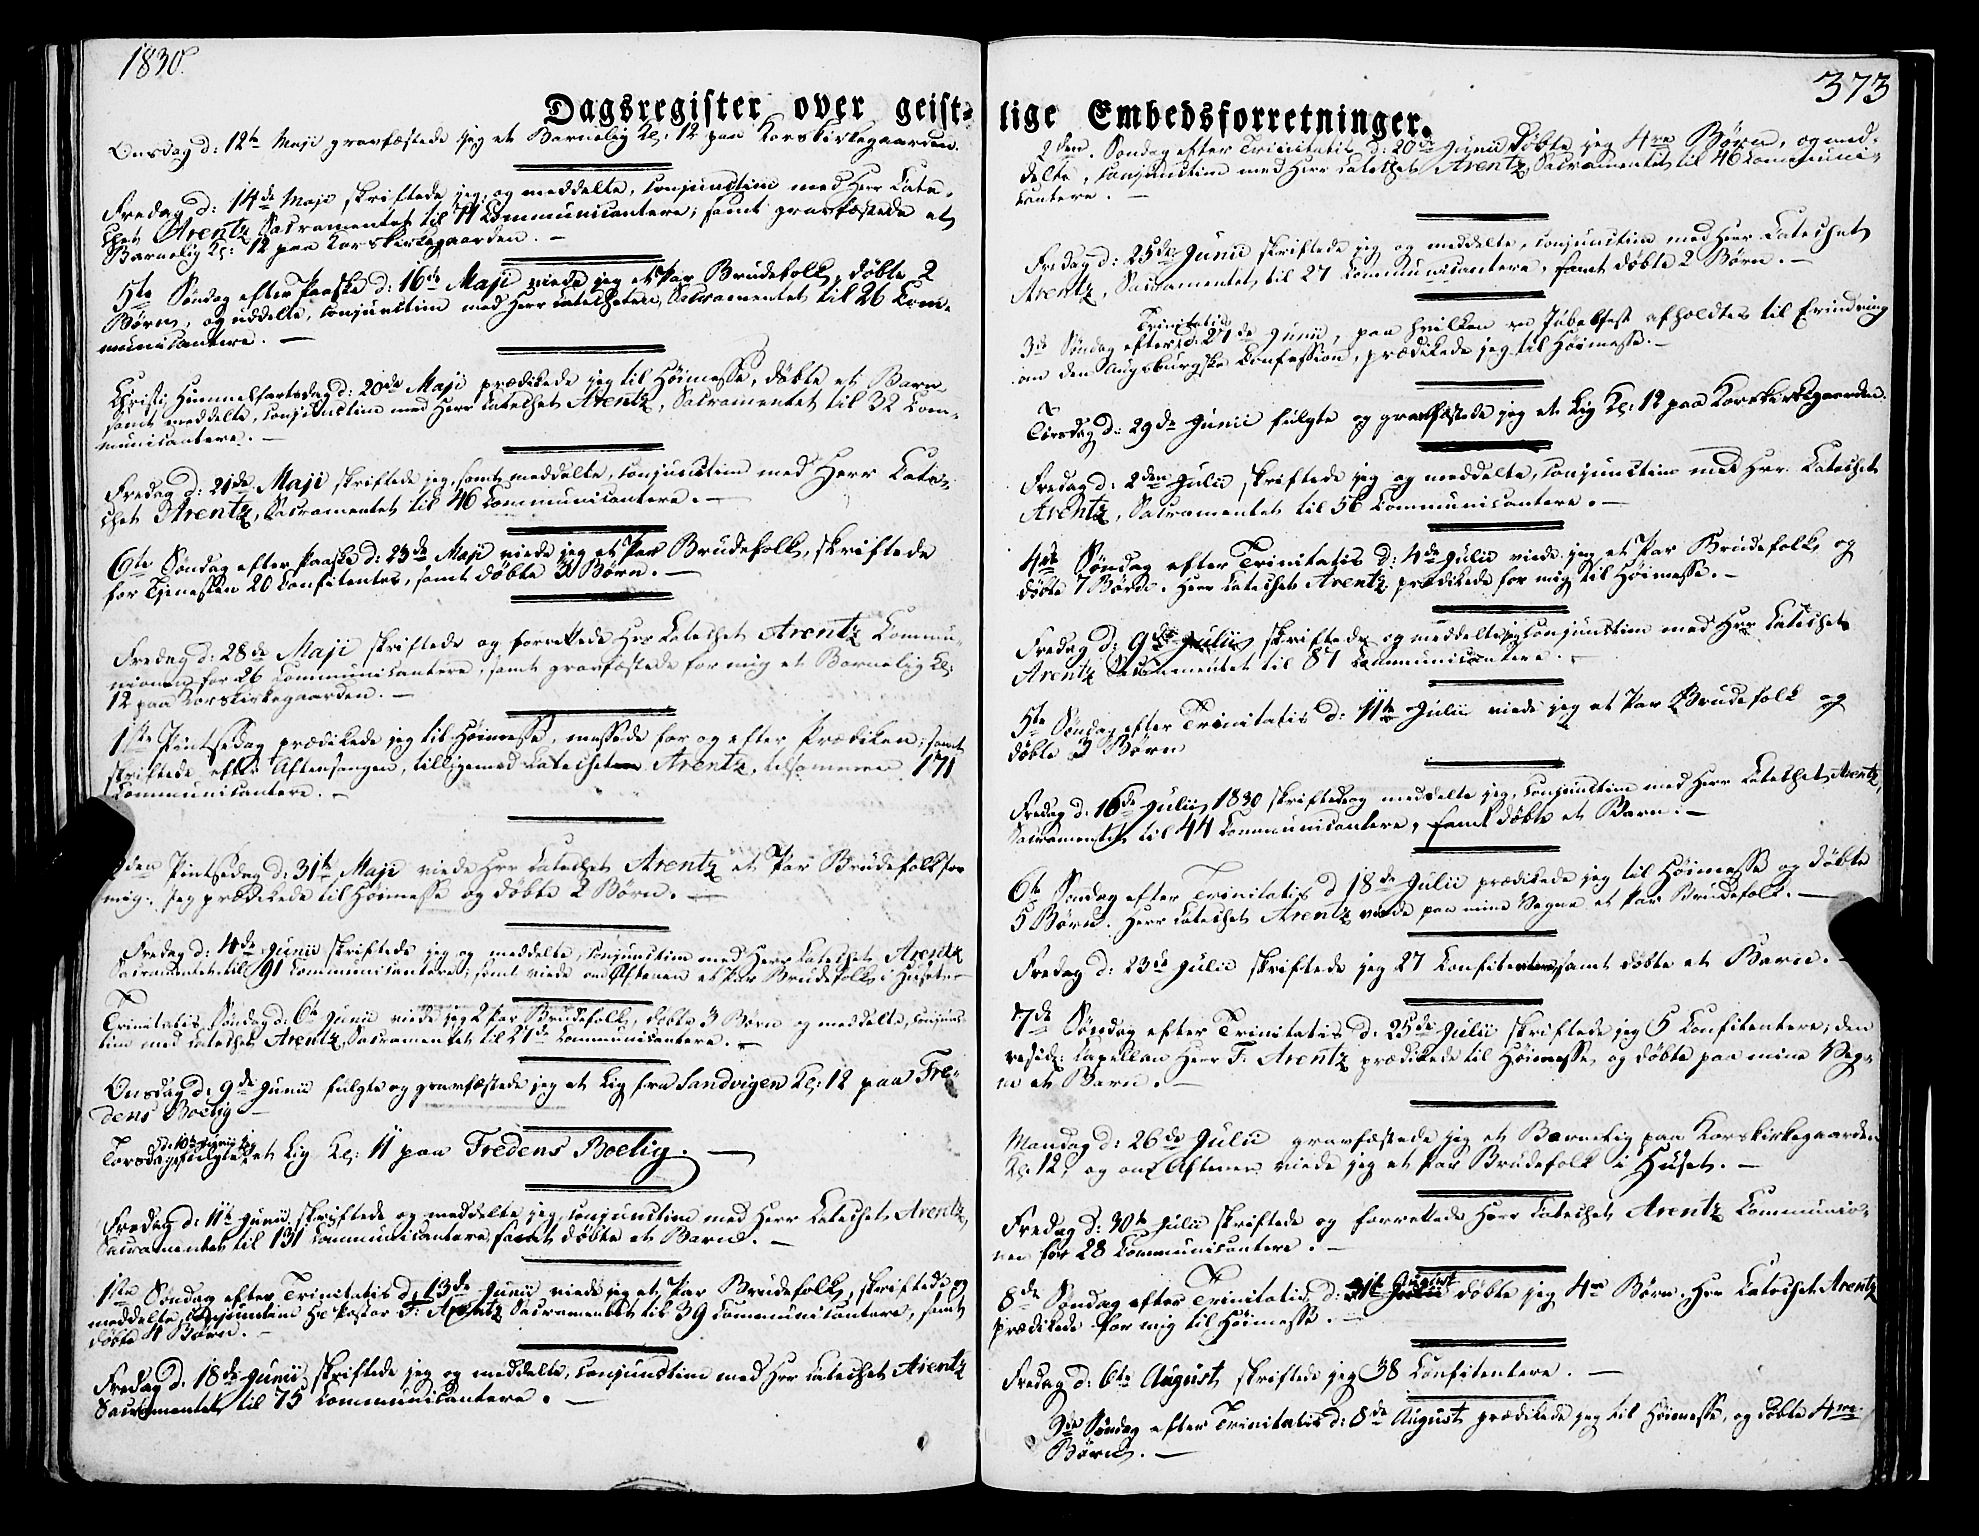 1830.
Dagsregister over geist-
Onsdag d: 12te Maji gravfæstede jeg et Barnelig Kl: 12 paa Korskirkegaarden.
Fredag d: 14de Maji skriftede jeg og meddelte, conjunctim med Herr Cate-
chet Arentz Sacramentet til 11 Communicantere; samt gravfæstede et
Barnelig Kl: 12 paa Korskirkegaarden. –
5te Søndag efter Paaske d: 16de Maji viede jeg et Par Brudefolk, døbte 2
Børn, og uddelte, conjunctim med Herr Catecheten, Sacramentet til 26 Com-
municantere. –
Christi Himmelfartsdag d: 20de Maji prædikede jeg til Høimesse, døbte et Barn
samt meddelte, conjunctim med Herr Catechet Arentz, Sacramentet til 32 Com-
municantere. –
Fredag d: 21de Maji skriftede jeg, samt meddelte, conjunctim med Herr Cate-
chet Arentz, Sacramentet til 46 Communicantere. –
6te Søndag efter Paaske d: 23de Maji viede jeg et Par Brudefolk, skriftede
før Tjenesten 20 Confitentes, samt døbte 3 Børn. –
Fredag d: 28de Maji skriftede og forrettede Hrr Catechet Arentz Commu-
nionen for 26 Communicantere, samt gravfæstede for mig et Barnelig Kl:
12 paa Korskirkegaarden. –
1ste Pintsedag prædikede jeg til Høimesse, messede for og efter Prædiken; samt
skriftede efter Aftensangen, tilligemed Catecheten Arentz, tilsammen 171
Communicantere. –
2den Pintsedag d: 31te Maji viede Hrr Catechet Arentz et Par Brudefolk for
mig. Jeg prædikede til Høimesse og døbte 2 Børn. –
Fredag d: 4de Junii skriftede jeg og meddelte, conjunctim med Herr Catechet Arentz
Sacramentet til 91 Communicantere; samt viede om Aftenen et Par Brudefolk i Huset. –
Trinitatis Søndag d: 6te Junii viede jeg 2 Par Brudefolk, døbte 3 Børn og meddelte, conjunc-
tim med Catechet Arentz, Sacramentet til 27de Communicantere. –
Onsdag d: 9de Junii fulgte og gravfæstede jeg et Lig fra Sandvigen Kl: 12 paa Fre-
dens Boelig –
d: 10de Junii jeg
Torsdag fulgte et Lig Kl: 11 paa Fredens Boelig. –
Fredag d: 11te Junii skriftede og meddelte jeg, conjunctim med Herr Catechet Arentz,
Sacramentet til 131 Communicantere, samt døbte et Barn. –
1ste Søndag efter Trinitatis d. 13de Junii viede jeg et Par Brudefolk, skriftede og
meddelte, conjunctim Hr Pastor F: Arentz Sacramentet til 39 Communicantere, samt
døbte 4 Børn. –
Fredag d. 18de Junii skriftede jeg og meddelte, conjunctim med Hrr Catechet Arentz
Sacramentet til 75 Communicantere. –
373
lige Embedsforretninger.
2den Søndag efter Trinitatis d: 20de Junii døbte jeg 4re Børn, og med-
delte, conjunctim med Herr Catechet Arentz, Sacramentet til 46 Communi-
cantere. –
Fredag d: 25de Junii skriftede jeg og meddelte, conjunctim med Herr Catechet
Arentz, Sacramentet til 27 Communicantere, samt døbte 2 Børn. –
Trinitatis
3die Søndag efter d: 27de Junii, paa hvilken en Jubelfest afholdtes til Erindring
om den Augsburgske Confession, prædikede jeg til Høimesse. –
Tirsdag d: 29de Junii fulgte og gravfæstede jeg et Lig Kl: 12 paa Korskirkegaarden.
Fredag d: 2den Julii skriftede jeg og meddelte, conjunctim med Hrr. Catechet
Arentz, Sacramentet til 56 Communicantere. –
4de Søndag efter Trinitatis d: 4de Julii viede jeg et Par Brudefolk og
døbte 7 Børn. Herr Catechet Arentz prædikede for mig til Høimesse. –
Fredag d: 9de Julii skriftede og meddelte jeg conjunctim med Hrr Catechet
Arentz Sacramentet til 87 Communicantere. –
5te Søndag efter Trinitatis d: 11te Julii viede jeg et Par Brudefolk og
døbte 3 Børn
Fredag d: 16de Julii 1830 skriftede og meddelte jeg, conjunctim med Herr Catechet Arentz,
Sacramentet til 44 Communicantere, samt døbte et Barn. –
6te Søndag efter Trinitatis d 18de Julii prædikede jeg til Høimesse og døbte
5 Børn. Herr Catechet Arentz viede paa mine Vegne et Par Brudefolk. –
Fredag d: 23de Julii skriftede jeg 27 Confitentere, samt døbte et Barn. –
7de Søndag efter Trinitatis d: 25de Julii skriftede jeg 5 Confitentere; den
resid: Capellan Herr F: Arentz prædikede til Høimesse, og døbte paa mine Veg-
ne et Barn. –
Mandag d: 26de Julii gravfæstede jeg et Barnelig paa Korskirkegaarden
Kl: 12, og om Aftenen viede jeg et Par Brudefolk i Huset. –
Fredag d: 30te Julii skriftede og forrettede Herr Catechet Arentz Communio-
nen for 28 Communicantere. –
8de Søndag efter Trinitatis d: 1te August døbte jeg 4re Børn. Hrr Catechet Arentz
prædikede for mig til Høimesse. –
Fredag d: 6te August skriftede jeg 38 Confitentere. –
9de Søndag efter Trinitatis d: 8de August prædikede jeg til Høimesse, og døbte 4re
Børn. –